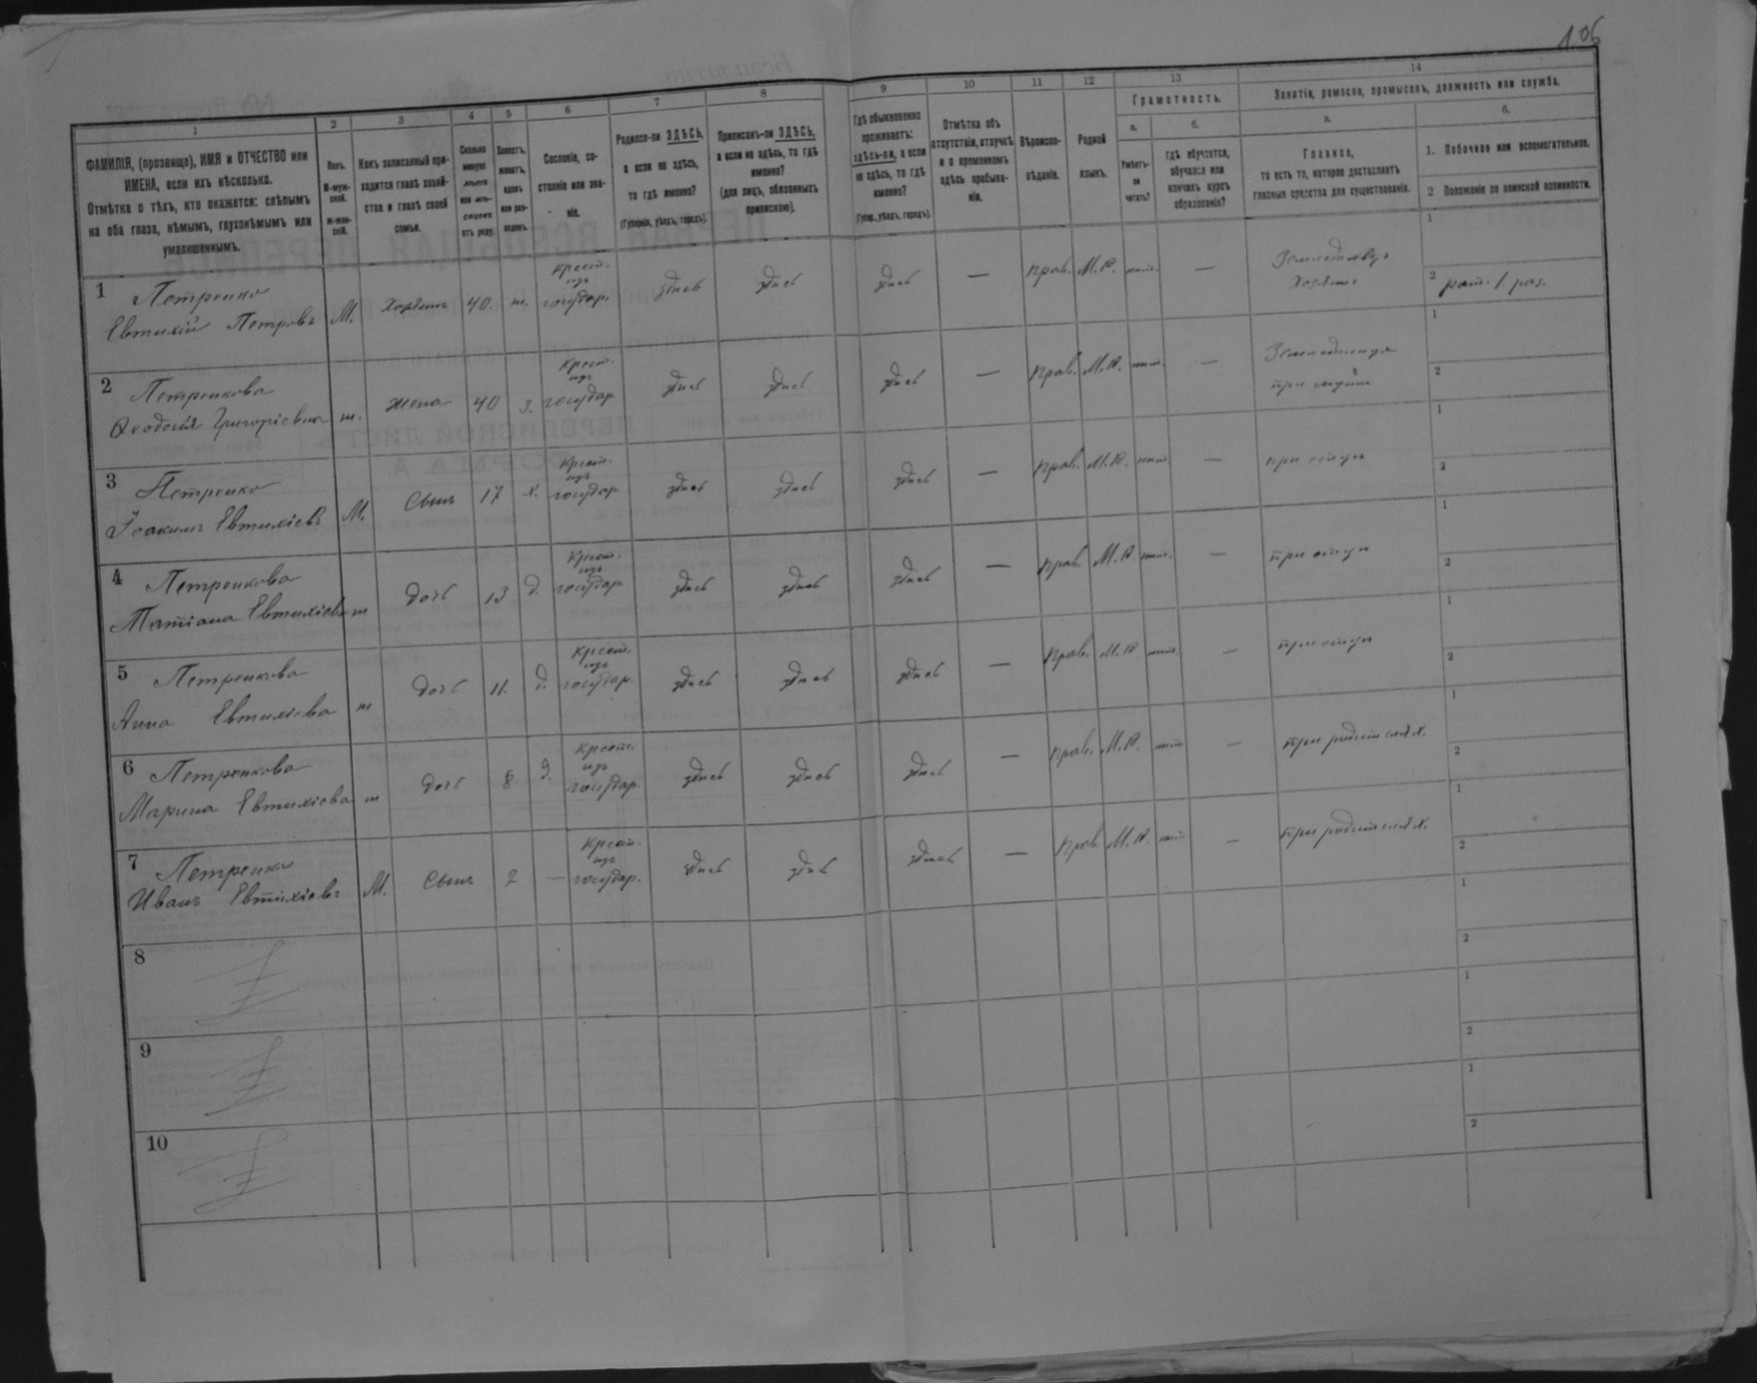 106
1
2
3
4
5
6
7
8
9
10
11
12
13
14
ФАМИЛІЯ, (прозвище), ИМЯ и ОТЧЕСТВО или
ИМЕНА, если ихъ нѣсколько.
Отмѣтка о тѣхъ, кто окажется: слѣпымъ
на оба глаза, нѣмымъ, глухонѣмымъ или
умалишеннымъ.
Полъ.
М-муж-
ской.
ж-жен-
скій.
Какъ записанный при-
ходится главѣ хозяй-
ства и главѣ своей
семьи.
Сколько
минуло
лѣтъ
или мѣ-
сяцевъ
отъ роду.
Холостъ,
женатъ,
вдовъ
или раз-
веденъ.
Сословіе, со-
стояніе или зва-
ніе.
Родился-ли ЗДѢСЬ,
а если не здѣсь,
то гдѣ именно?
(Губернія, уѣздъ, городъ).
Приписанъ-ли ЗДѢСЬ,
а если не здѣсь, то гдѣ
именно?
(для лицъ, обязанныхъ
припискою).
Гдѣ обыкновенно
проживаетъ:
здѣсь-ли, а если
не здѣсь, то гдѣ
именно?
(Губер., уѣздъ, городъ).
Отмѣтка объ
отсутствіи, отлучкѣ
и о временномъ
здѣсь пребыва-
ніи.
Вѣроиспо-
вѣданіе.
Родной
языкъ.
Грамотность.
а.
б.
Умѣетъ-
ли
читать?
гдѣ обучается,
обучался или
кончилъ курсъ
образованія?
Занятіе, ремесло, промыселъ, должность или служба.
а.
б.
Главное,
то есть то, которое доставляетъ
главныя средства для существованія.
1. Побочное или вспомогательное.
2 Положеніе по воинской повинности.
1 Петренко
Евтихій Петровъ М. Хозяинъ 40. ж. Крест. изъ государ. здѣсь здѣсь здѣсь — Прав. М.Р. нѣт. — Земледѣлецъ Хозяинъ
1
2 рат. 1 раз.
2 Петренкова
Ѳеодосія Григоріевна ж. жена 40 з. Крест. изъ государ здѣсь здѣсь здѣсь — Прав. М.Р. нѣт. — Земледѣлица при мужѣ
1
2
3 Петренко
Іоакимъ Евтихіевъ М. Сынъ 17 х. Крест. изъ государ здѣсь здѣсь здѣсь — Прав. М.Р. нѣт. — при отцѣ
1
2
4 Петренкова
Татіана Евтихіева ж Дочь 13 д. Крест. изъ государ. здѣсь здѣсь здѣсь — Прав. М.Р. нѣт. — при отцѣ
1
2
5 Петренкова
Анна Евтихіева ж Дочь 11. д. Крест. изъ государ. здѣсь здѣсь здѣсь — Прав. М.Р нѣт. — при отцѣ
1
2
6 Петренкова
Марина Евтихіева ж Дочь 8 д. Крест. изъ государ. здѣсь здѣсь здѣсь — Прав. М.Р. нѣт — при родителях.
1
2
7 Петренко
Иванъ Евтихіевъ М. Сынъ 2 — Крест. изъ государ. здѣсь здѣсь здѣсь — Прав. М.Р. нѣт — при родителях.
1
2
8
1
2
9
1
2
10
1
2